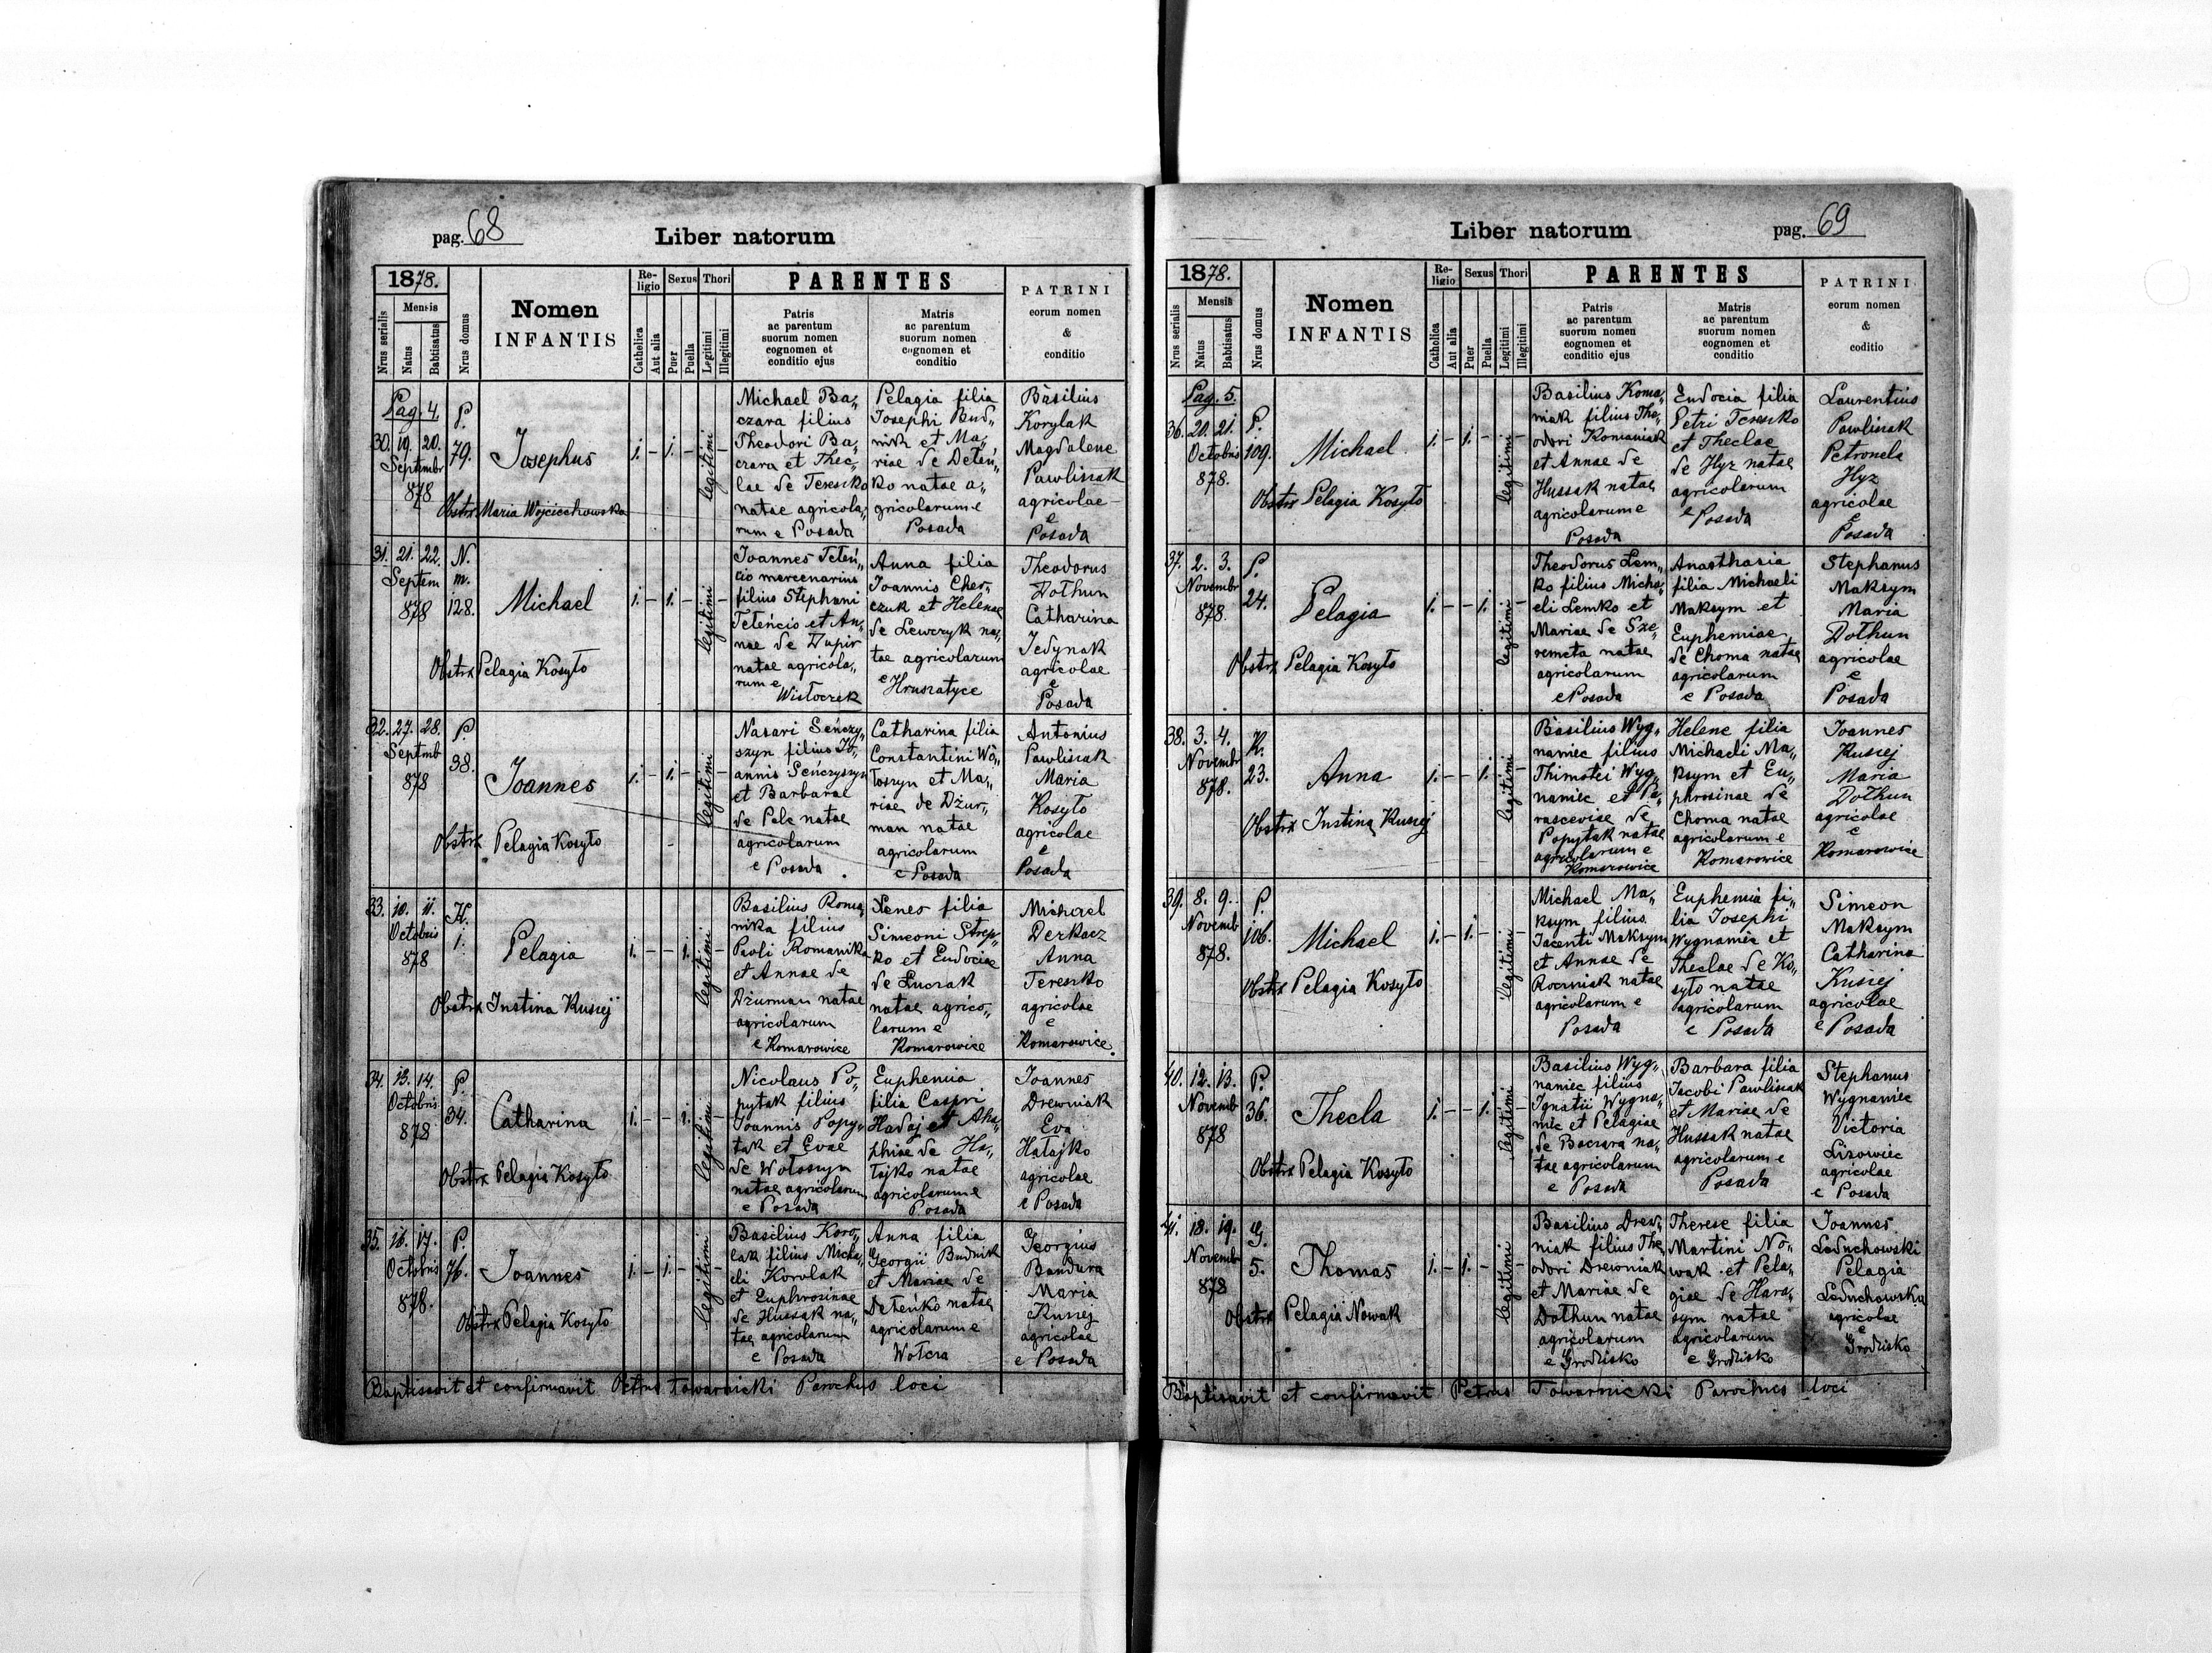 pag. 68
Liber natorum
1878.
Nrus serialis
Mensis
Natus
Babtisatus
Nrus domus
Nomen
INFANTIS
Re-
ligio
Catholica
Aut alia
Sexus
Puer
Puella
Thori
Legitimi
Illegitimi
PARENTES
Patris
ac parentum
suorum nomen
cognomen et
conditio ejus
Matris
ac parentum
suorum nomen
cognomen et
conditio
PATRINI
eorum nomen
&
conditio
Pag. 4.
30. 19. 20.
Septembr
878
P.
79.
Josephus
Obstrx Maria Wojciechowska
1. - 1. - legitimi -
Michael Ba„
czara filius
Theodori Ba„
czara et Thec„
lae de Tereszko
natae agricola„
rum e Posada
Pelagia filia
Josephi Bud„
nik et Ma„
riae de Deteń„
ko natae a„
gricolarum e
Posada
Basilius
Korylak
Magdalene
Pawlisiak
agricolae
e
Posada
31. 21. 22.
Septem
878
N.
m.
128.
Michael
Obstrx Pelagia Kosyło
1. - 1. - legitimi -
Joannes Teteń„
cio mercenarius
filius Stephani
Teteńcio et An„
nae de Dupir
natae agricola„
rum e
Wisłoczek
Anna filia
Joannis Cher„
czuk et Helenae
de Lewczyk na„
tae agricolarum
e Hruszatyce
Theodorus
Dołhun
Catharina
Jedynak
agricolae
e
Posada
32. 27. 28.
Septmb
878
P.
38.
Joannes
Obstrx Pelagia Kosyło
1. - 1. - legitimi -
Nasari Seńczy„
szyn filius Jo„
annis Seńczyszyn
et Barbarae
de Pelc natae
agricolarum
e Posada
Catharina filia
Constantini Wo„
łoszyn et Ma„
riae de Dżur„
man natae
agricolarum
e Posada
Antonius
Pawlisiak
Maria
Kosyło
agricolae
e
Posada
33. 10. 11.
Octobris
878
K.
1.
Pelagia
Obstrx Justina Kusiej
1. - - 1. legitimi -
Basilius Roma„
nika filius
Pauli Romanika
et Annae de
Dżurman natae
agricolarum
e Komarowice
Xenes filia
Simeoni Strep„
ko et Eudociae
de Łuczak
natae agrico„
larum e
Komarowice
Michael
Derkacz
Anna
Tereszko
agricolae
e
Komarowice.
34. 13. 14.
Octobris
878
P.
34.
Catharina
Obstrx Pelagia Kosyło
1. - - 1. legitimi -
Nicolaus Po„
pytak filius
Joannis Popy„
tak et Evae
de Wołoszyn
natae agricolarum
e Posada
Euphemia
filia Caspri
Hadaj et Aha„
phiae de Ha„
łajko natae
agricolarum e
Posada
Joannes
Drewniak
Eva
Hałajko
agricolae
e Posada
35. 16. 17.
Octobris
878.
P.
76.
Joannes
Obstrx Pelagia Kosyło
1. - 1. - legitimi -
Basilius Koro„
lak filius Micha„
eli Korolak
et Euphrosinae
de Hussak na„
tae agricolarum
e Posada
Anna filia
Georgii Budnik
et Mariae de
Deteńko natae
agricolarum e
Wołcza
Georgius
Bandura
Maria
Kusiej
agricolae
e Posada
Baptisavit et confirmavit Petrus Towarnicki Parochus loci
Liber natorum
pag. 69
1878.
Nrus serialis
Mensis
Natus
Babtisatus
Nrus domus
Nomen
INFANTIS
Re-
ligio
Catholica
Aut alia
Sexus
Puer
Puella
Thori
Legitimi
Illegitimi
PARENTES
Patris
ac parentum
suorum nomen
cognomen et
conditio ejus
Matris
ac parentum
suorum nomen
cognomen et
conditio
PATRINI
eorum nomen
&
coditio
Pag. 5.
36. 20. 21.
Octobris
878.
P.
109.
Michael
Obstrx Pelagia Kosyło
1. - 1. - legitimi -
Basilius Koma„
niak filius The„
odori Komaniak
et Annae de
Hussak natae
agricolarum e
Posada
Eudocia filia
Petri Tereszko
et Theclae
de Hyz natae
agricolarum
e Posada
Laurentius
Pawlisiak
Petronela
Hyz
agricolae
e
Posada
37. 2. 3.
Novembr
878.
P.
24.
Pelagia
Obstrx Pelagia Kosyło
1. - - 1. legitimi -
Theodorus Lem„
ko filius Micha„
eli Lemko et
Mariae de Sze„
remeta natae
agricolarum
e Posada
Anasthasia
filia Michaeli
Maksym et
Euphemiae
de Choma natae
agricolarum
e Posada
Stephanus
Maksym
Maria
Dołhun
agricolae
e
Posada
38. 3. 4.
Novembr
878.
K.
23.
Anna
Obstrx Justina Kusiej
1. - - 1. legitimi -
Basilius Wyg„
naniec filius
Thimotei Wyg„
naniec et Pa„
rasceviae de
Popytak natae
agricolarum e
Komarowice
Helene filia
Michaeli Ma„
ksym et Eu„
phrosinae de
Choma natae
agricolarum e
Komarowice
Joannes
Kusiej
Maria
Dołhun
agricolae
e
Komarowice
39. 8. 9.
Novemb
878.
P.
106.
Michael
Obstrx Pelagia Kosyło
1. - 1. - legitimi -
Michael Ma„
ksym filius
Jacenti Maksym
et Annae de
Roczniak natae
agricolarum e
Posada
Euphemia fi„
lia Josephi
Wygnaniec et
Theclae de Ko„
syło natae
agricolarum
e Posada
Simeon
Maksym
Catharina
Kusiej
agricolae
e Posada
40. 12. 13.
Novemb
878
P.
36.
Thecla
Obstrx Pelagia Kosyło
1. - - 1. legitimi -
Basilius Wyg„
naniec filius
Ignatii Wygna„
niec et Pelagiae
de Baczara na„
tae agricolarum
e Posada
Barbara filia
Jacobi Pawlisiak
et Mariae de
Hussak natae
agricolarum e
Posada
Stephanus
Wygnaniec
Victoria
Lisowiec
agricolae
e Posada
41. 18. 19.
Novembr
878
G.
5.
Thomas
Obstrx Pelagia Nowak
1. - 1. - legitimi -
Basilius Drew„
niak filius The„
odori Drewniak
et Mariae de
Dołhun natae
agricolarum
e Grodzisko
Therese filia
Martini No„
wak et Pela„
giae de Hara„
sym natae
agricolarum
e Grodzisko
Joannes
Leduchowski
Pelagia
Leduchowska
agricolae
e
Grodzisko
Baptisavit et confirmavit Petrus Towarnicki Parochus loci